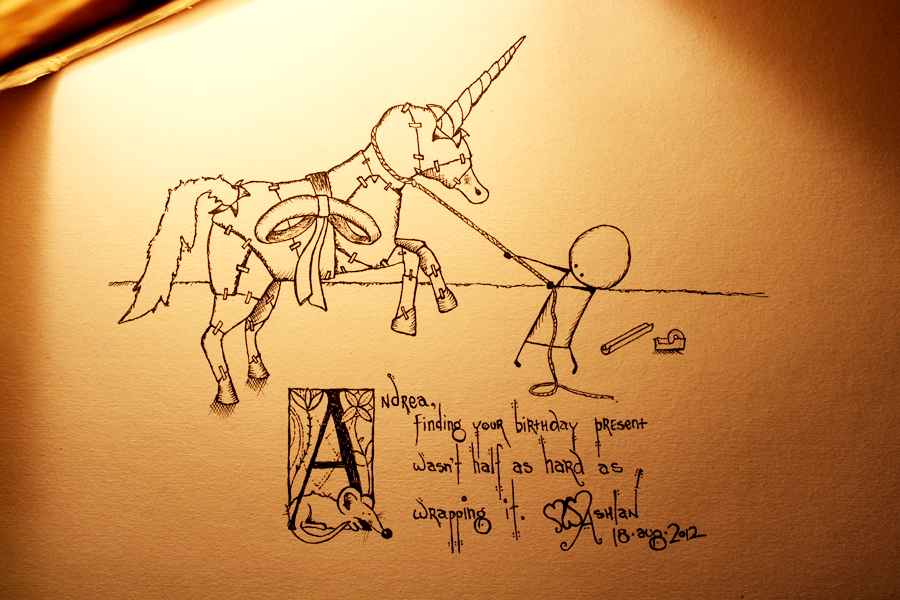 Andrea,
finding your birthday present
wasn't half as hard as
wrapping it. Ashlan
18.aug.2012